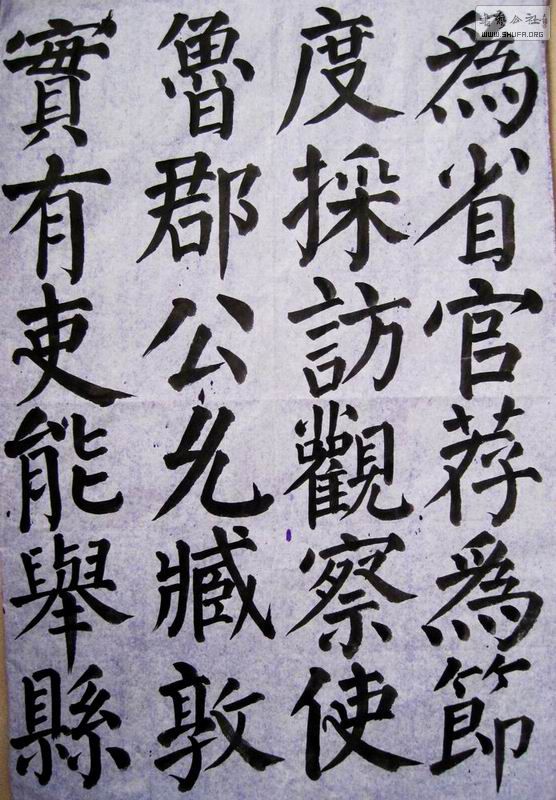 為省官荐為節
度採訪觀察使
魯郡公允臧敦
實有吏能舉縣
書藝公社
WWW.SHUFA.ORG